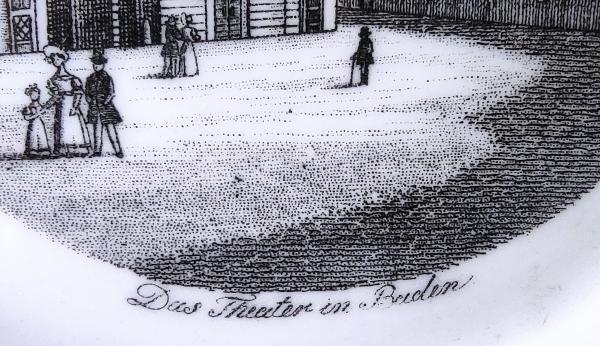 Das Theater in Baden